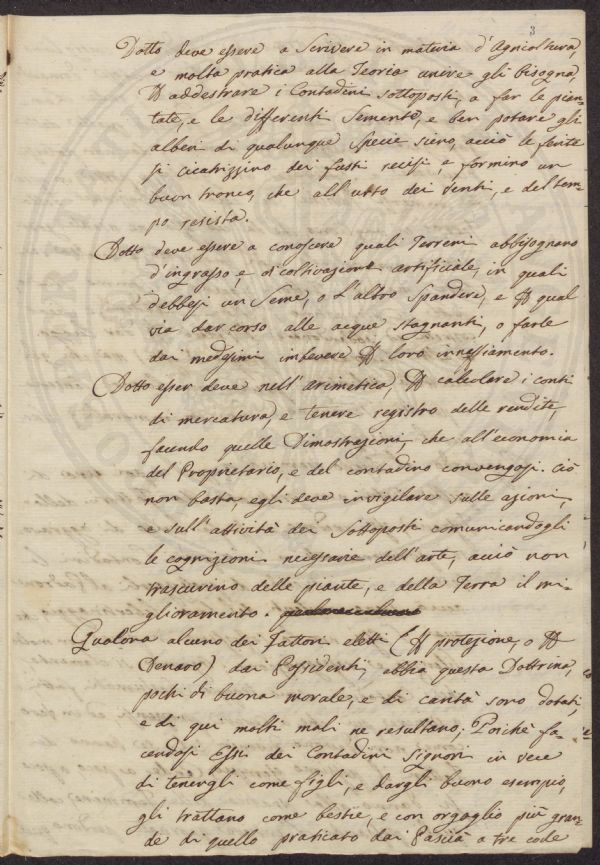 3
Dotto deve essere a Scrivere in materia d'Agricoltura,
e molta pratica alla Teoria unire gli bisogna,
addestrare i Contadini sottoposti, a far le pian-
tate, e le differenti Semente, e ben potare gli
alberi di qualunque specie sieno, acciò le ferite
si cicatrizzino dei fusti recisi, e formino un
buon tronco, che all'urto dei venti, e del tem-
po resista.
Dotto deve essere a conoscere quali Terreni abbisognano
d'ingrasso, e di coltivazione artificiale, in quali
debbesi un Seme, o l'altro Spandere, e qual
via dar corso alle acque stagnanti, o farle
dai medesimi imbevere loro innaffiamento.
Dotto esser deve nell'arimetica, calcolare i conti
di mercatura, e tenere registro delle rendite,
facendo quelle Dimostrazioni, che all'economia
del Proprietario, e del contadino convengosi. Ciò
non basta, egli deve invigilare sulle azioni,
e sull'attività dei Sottoposti comunicandogli
le cognizioni necessarie dell'arte, acciò non
trascurino delle piante, e della Terra il mi-
glioramento.
Qualora alcuno dei Fattori eletti (protezione, o
Denaro) dai Possidenti, abbia questa Dottrina,
pochi di buona morale, e di carità sono dotati,
e di qui molti mali ne resultano; Poichè fa-
cendosi Essi dei Contadini Signori in vece
di tenergli come figli, e dargli buono esempio,
gli trattano come bestie, e con orgoglio più gran-
de di quello praticato dai Pascià a tre code